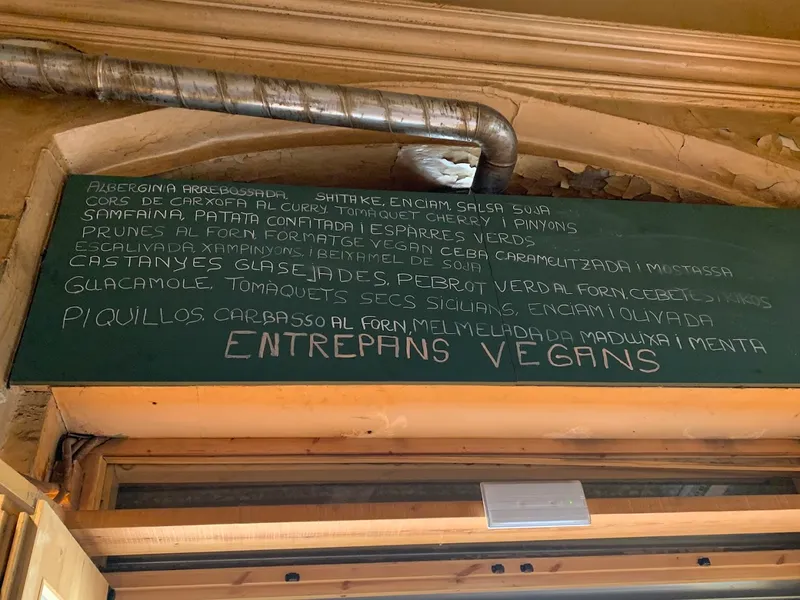 ALBERGINIA ARREBOSSADA. SHITAKE, ENCIAM, SALSA SUJA
CORS DE CARXOFA AL CURRY, TOMÀQUET CHERRY I PINYONS
SAMFAINA, PATATA CONFITADA I ESPÀRRES VERDS
PRUNES AL FORN, FORMATGE VEGAN CEBA CARAMELITZADA I MOSTASSA
ESCALIVADA XAMPINYONS I BEIXAMEL DE SOJA
CASTANYES GLASEJADES, PEBROT VERD AL FORN, CEBETES I
GUACAMOLE, TOMÀQUETS SECS SICILIANS, ENCIAM I OLIVADA
PIQUILLOS, CARBASSO AL FORN, MELMELADADA MADUIXA I MENTA
ENTREPANS VEGANS